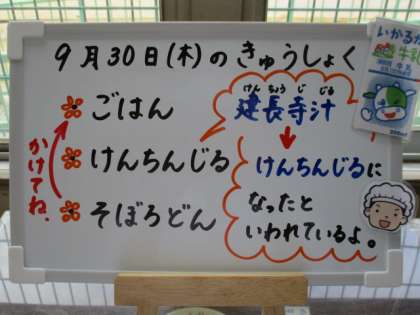 9月30日(木)のきゅうしょく
ごはん
けんちんじる
そぼろどん
かけてね。
けんちょうじじる
建長寺汁
けんちんじるに
なったと
いわれているよ。
いかるが
牛乳